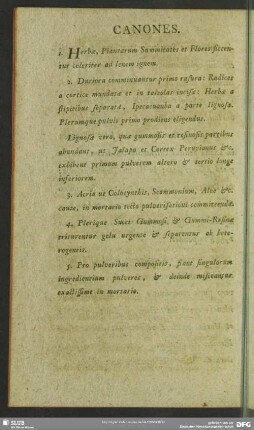 CANONES.
1. Herbæ, Plantarum Summitates et Flores siccen-
tur celeriter ad lenem ignem.
2. Duriora comminuantur primo rasura: Radices
a cortice mundata et in taleolas incisa: Herba a
stipitibus separata, Ipecacuanha a parte lignosa.
Plerumque pulvis primo prodiens eligendus.
Lignosa vero, qua gummosis et resinosis partibus
abundant, ut Jalapa et Cortex Peruvianus &c.
exhibent primum pulverem altero & tertio longe
inferiorem.
3. Acria ut Colocynthis, Scammonium, Aloë &c.
caute, in mortario tecto pulverisationi committenda.
4. Plerique Succi Gummosi, & Gummi-Resina
triturentur gelu urgente & separentur ab hete-
rogeneis.
5. Pro pulveribus compositis, fiant singulorum
ingredientium pulveres, & deinde misceantur
exactissime in mortario.
SLUB
DFG